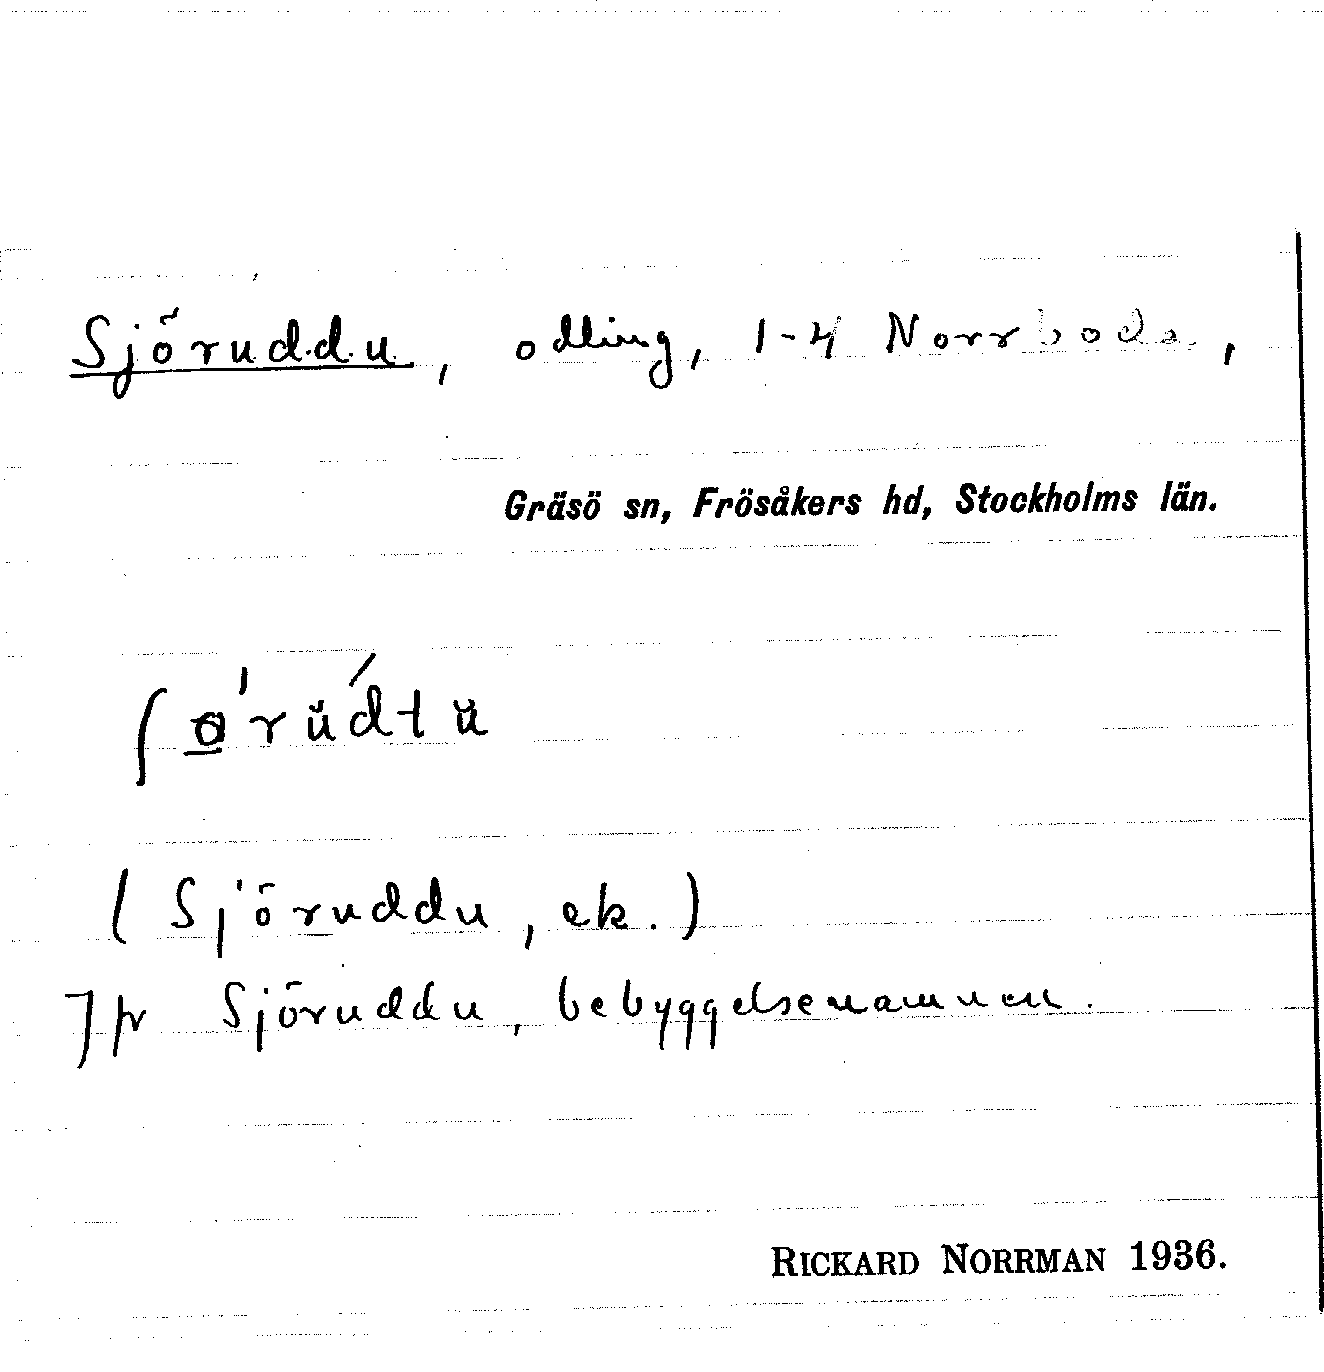 Sjöruddu, odling, 1-4 Norrboda,
Gräsö sn, Frösåkers hd, Stockholms län.
(Sjöruddu, ek.)
Jfr Sjöruddu, bebyggelsenamnen.
RICKARD NORRMAN 1936.